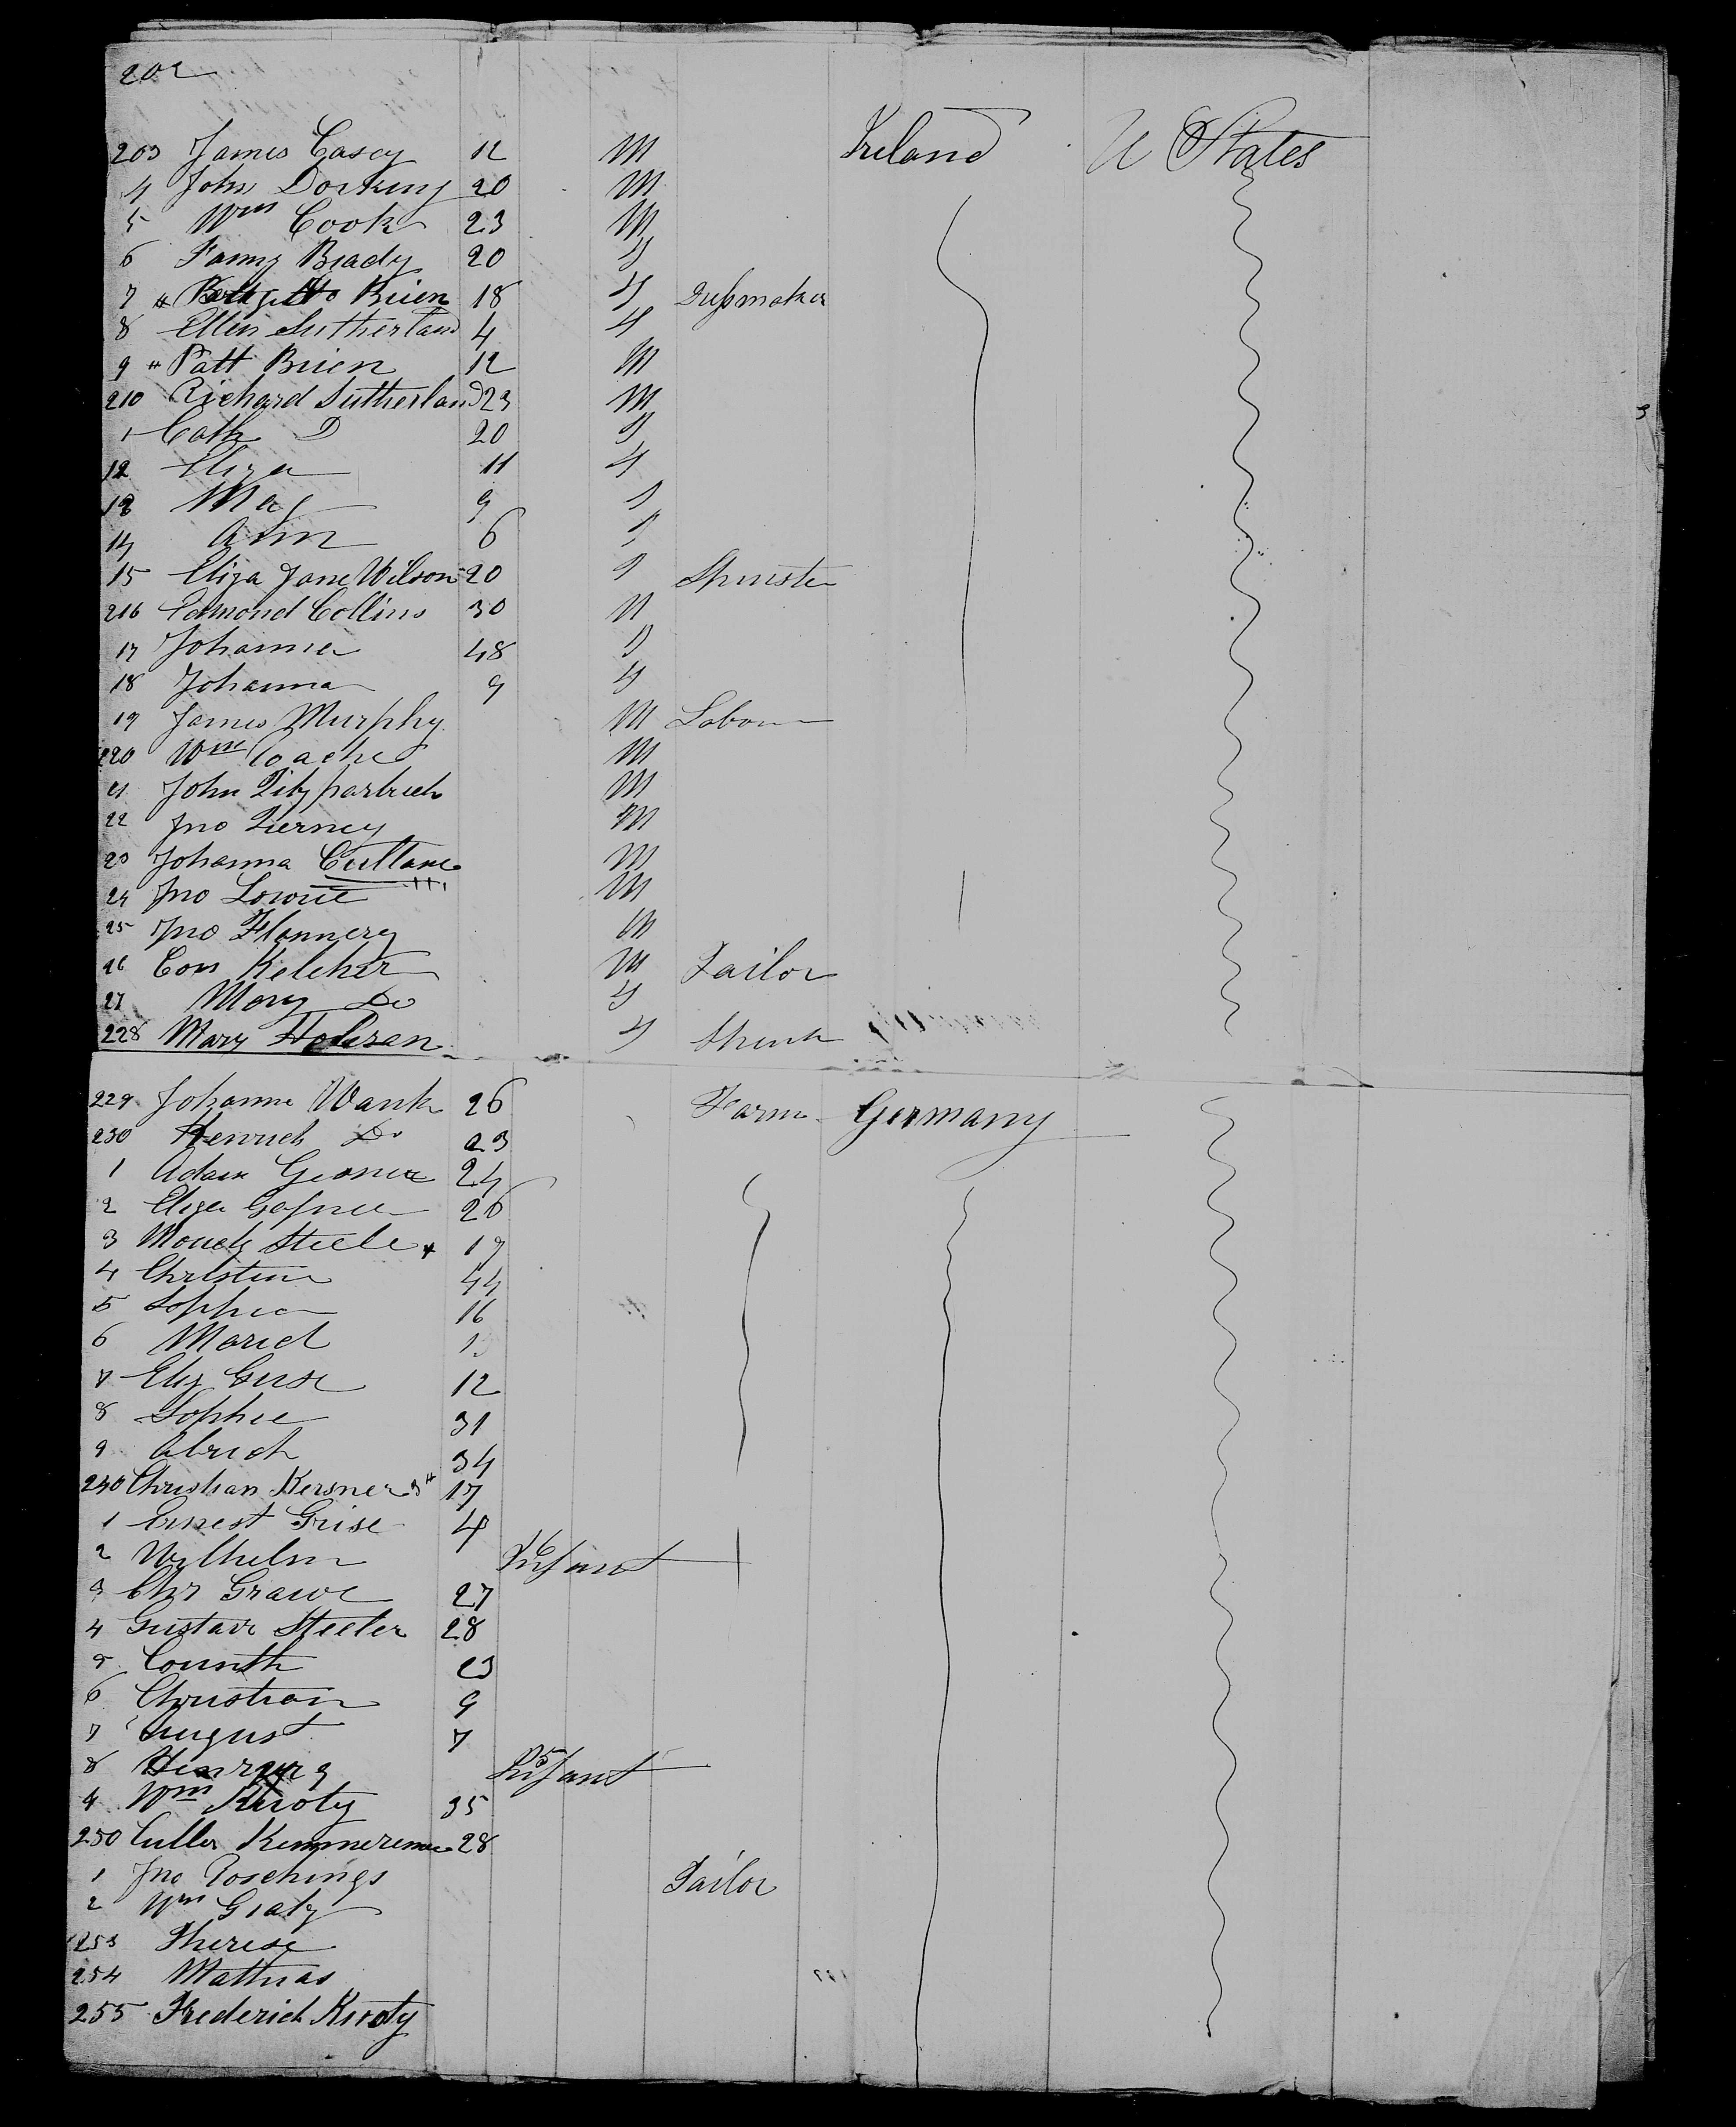 202
203 James Casey 12 M Ireland U States
4 John Dorking 20 M
5 Wm Cook 23 M
6 Fanny Brady 20 f
7 Brien 18 f Dressmaker
8 Ellen Sutherland 4 f
9 " Patt Brien 12 M
210 Richard Sutherland 23 M
1 Cath D 20 f
12 Eliza 11 f
13 Ma 9 f
14 Ann 6 f
15 Eliza Jane Wilson 20 f Spinster
216 Edmond Collins 30 M
17 Johanna 48 f
18 Johanna 9 f
19 James Murphy M Labour
220 Wm Roache M
21 John Fitzpartrick M
22 Jno Tierney M
23 Johanna Cullane M
24 Jno Lowrie M
25 Jno Flannery M
26 Con Keleher M Tailor
27 Mary Do f
228 Mary Holiran f
229 Johanne Wank 26 Farm Germany
230 Henrich Do 23
1 Adam 24
2 Eliza 26
3 Steele 19
4 Christine 44
5 Sophia 16
6 Mariel 1
7 Eliz 12
8 Sophie 31
9 34
240 Christian Kersner 17
1 Ernest Grise 4
2 Wilhelm 6 Infant
3 Chr Grawe 27
4 Gustave Steeler 28
5 23
6 Christian 9
7 August 7
8 5 Infant
9 Wm Kuoty 35
250 28
1 Jno Poschings Tailor
2 Wm Graty
253 Therese
254 Mathias
255 Frederick Kuoty